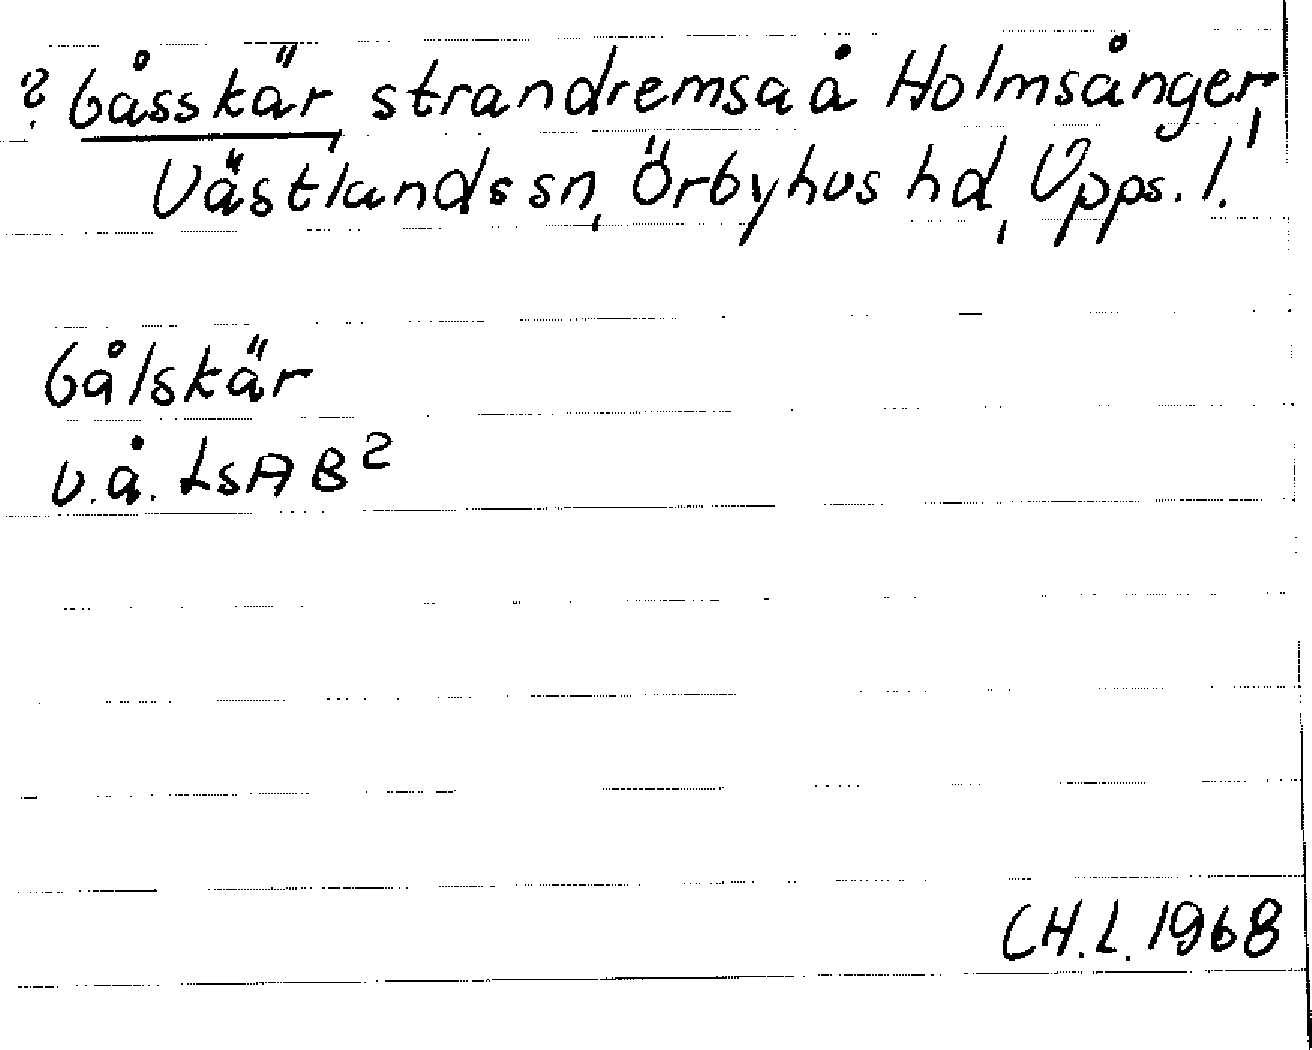 ? Gåsskär, strandremsa å Holmsånger,
Västlands sn, Örbyhus hd, Upps. l.
Gålskär
u.å. LSA B2
CH.L. 1968